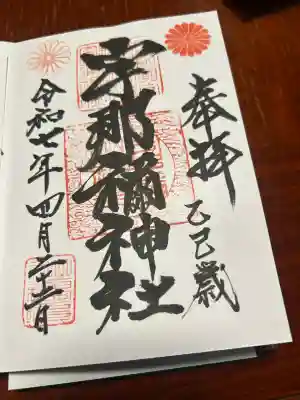 奉拝
乙巳歳
宇那禰神社
令和七年四月二十二日